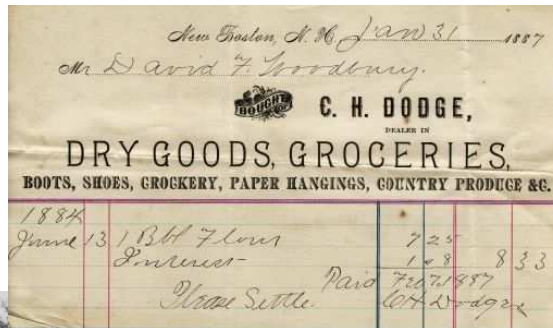 New Boston, N. H. Jan 31 1887
Mr David F. Woodbury.
BOUGHT OF C. H. DODGE,
DEALER IN
DRY GOODS, GROCERIES,
BOOTS, SHOES, CROCKERY, PAPER HANGINGS, COUNTRY PRODUCE &C.
1884
June 13 1 Bbl Flour 7 25
Interest 1 08 8 33
Paid Feb 7, 1887
Please Settle. C H Dodge